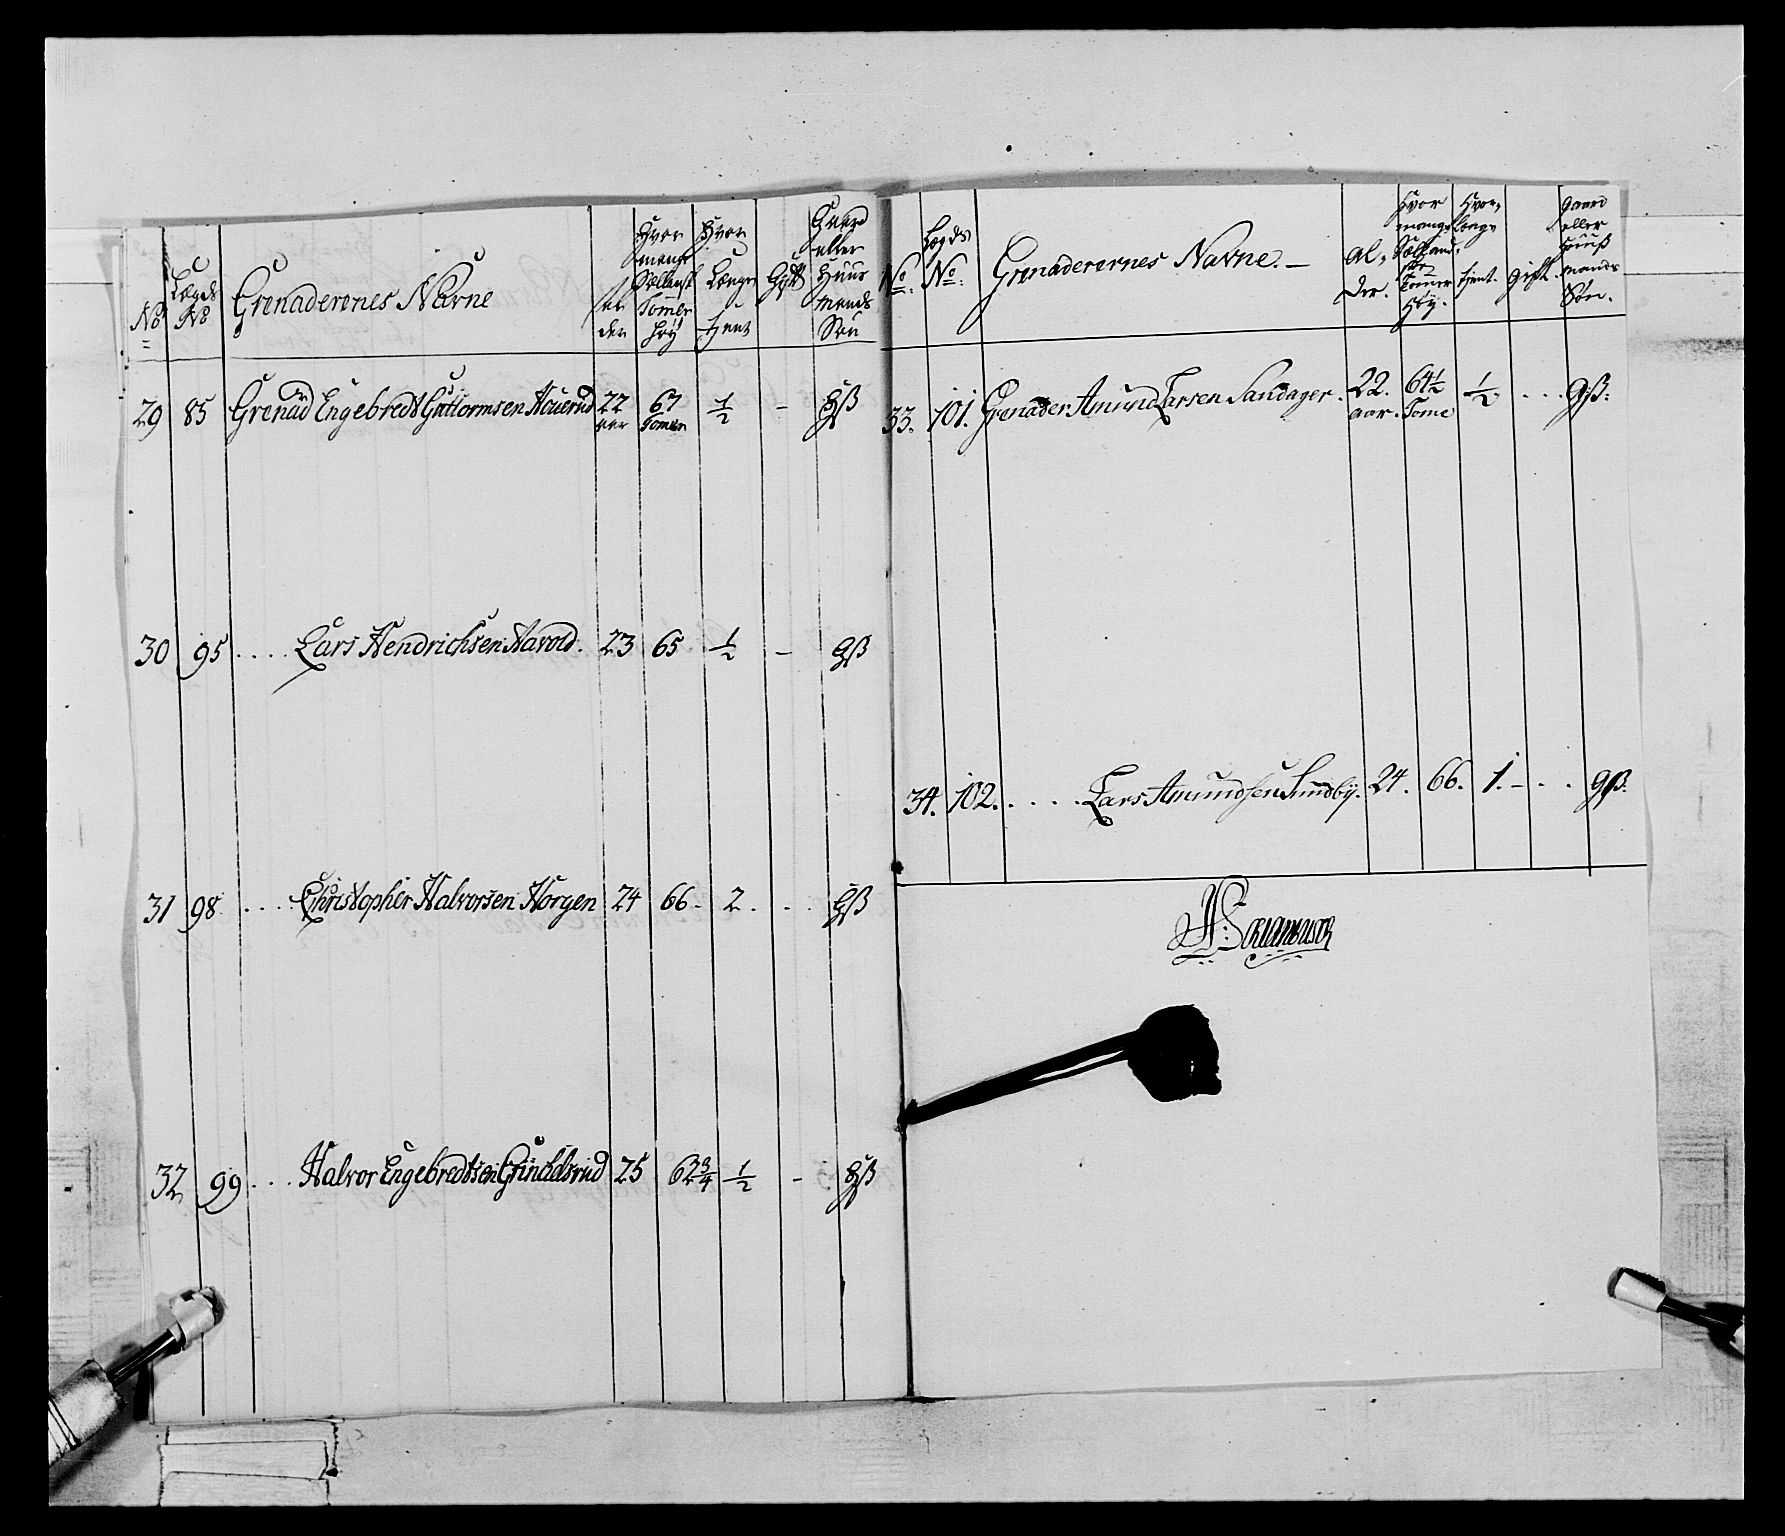 No Lægds No Grenaderenes Navne Al der Hvor mange Sællansk Tommer høy Hvor Længe tient Gift Gaard eller Huus mands Søn
29 85 Grenad Engebredt Guttormsen 22 aar 67 Tommer 1/2 - Hß
30 95 .... Lars Hendrichsen Aavold. 23 65 1/2 - gß
31 98 .... Christopher Halvorsen Horgen 24 66 . 2 . . . Hß
32 99 ... Halvor Engebredtsen 25 62 3/4 1/2 - Hß
No: Lægds No: Grenaderernes Navne. — Al, der. Hvor mange Tommer Høy. Hvor, Længe tient. Gift. gaard eller Huuß mands Søn.
33. 101. Grenader Amund Larsen Sandager. 22. aar. 64 1/2 Tome 1/2 . . . . gß:
34. 102. . . . . Lars Amundsen Sundbÿ. 24. 66. 1. - . . gß.